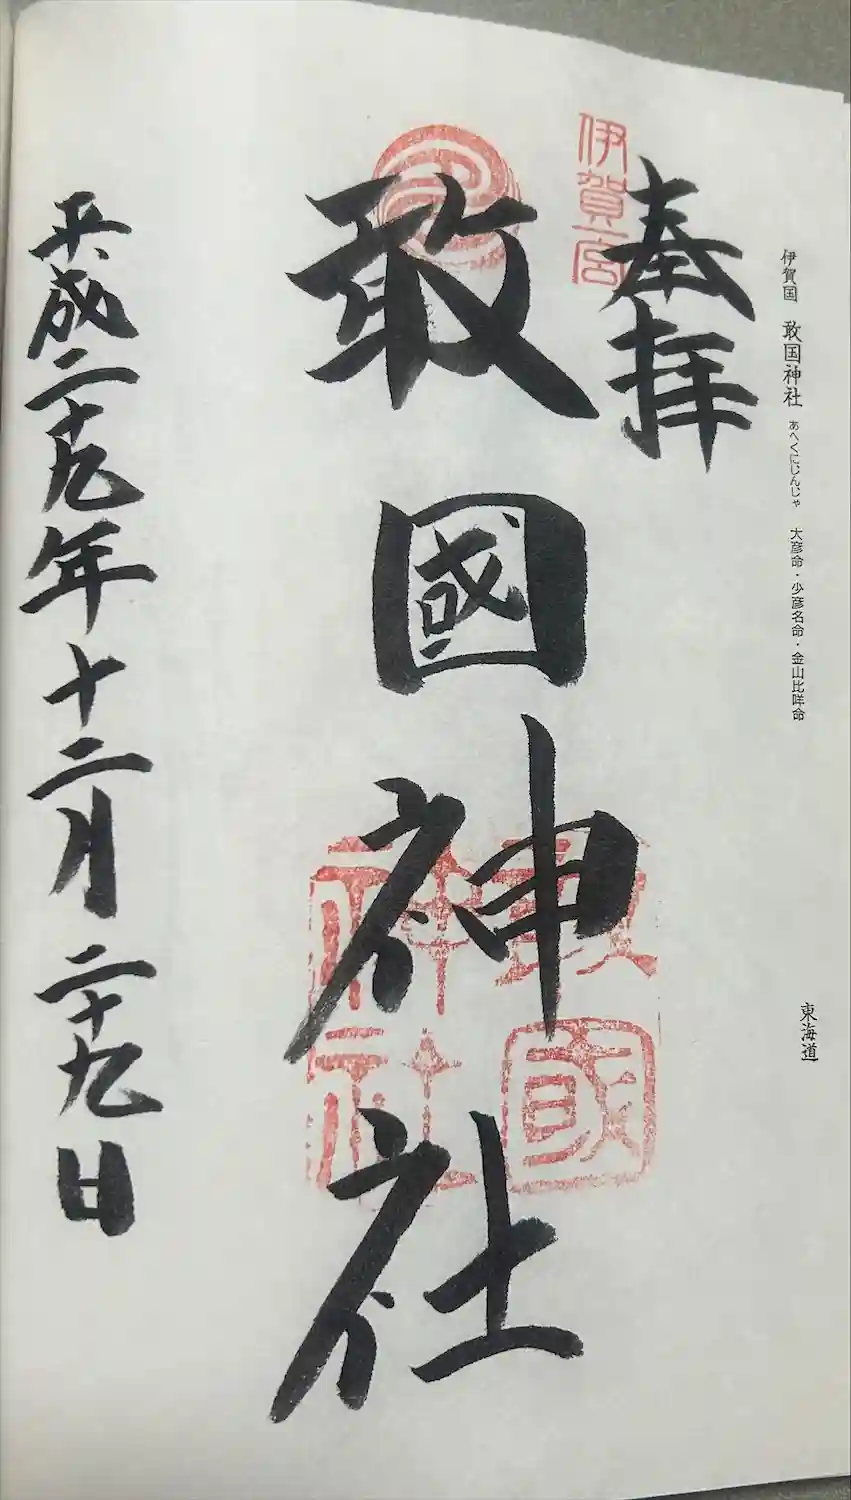 伊賀国 敢国神社 あへくにじんじゃ 大彦命・少彦名命・金山比咩命
東海道
奉拝
伊賀一宮
敢國神社
敢國
神社
平成二十九年十二月二十九日